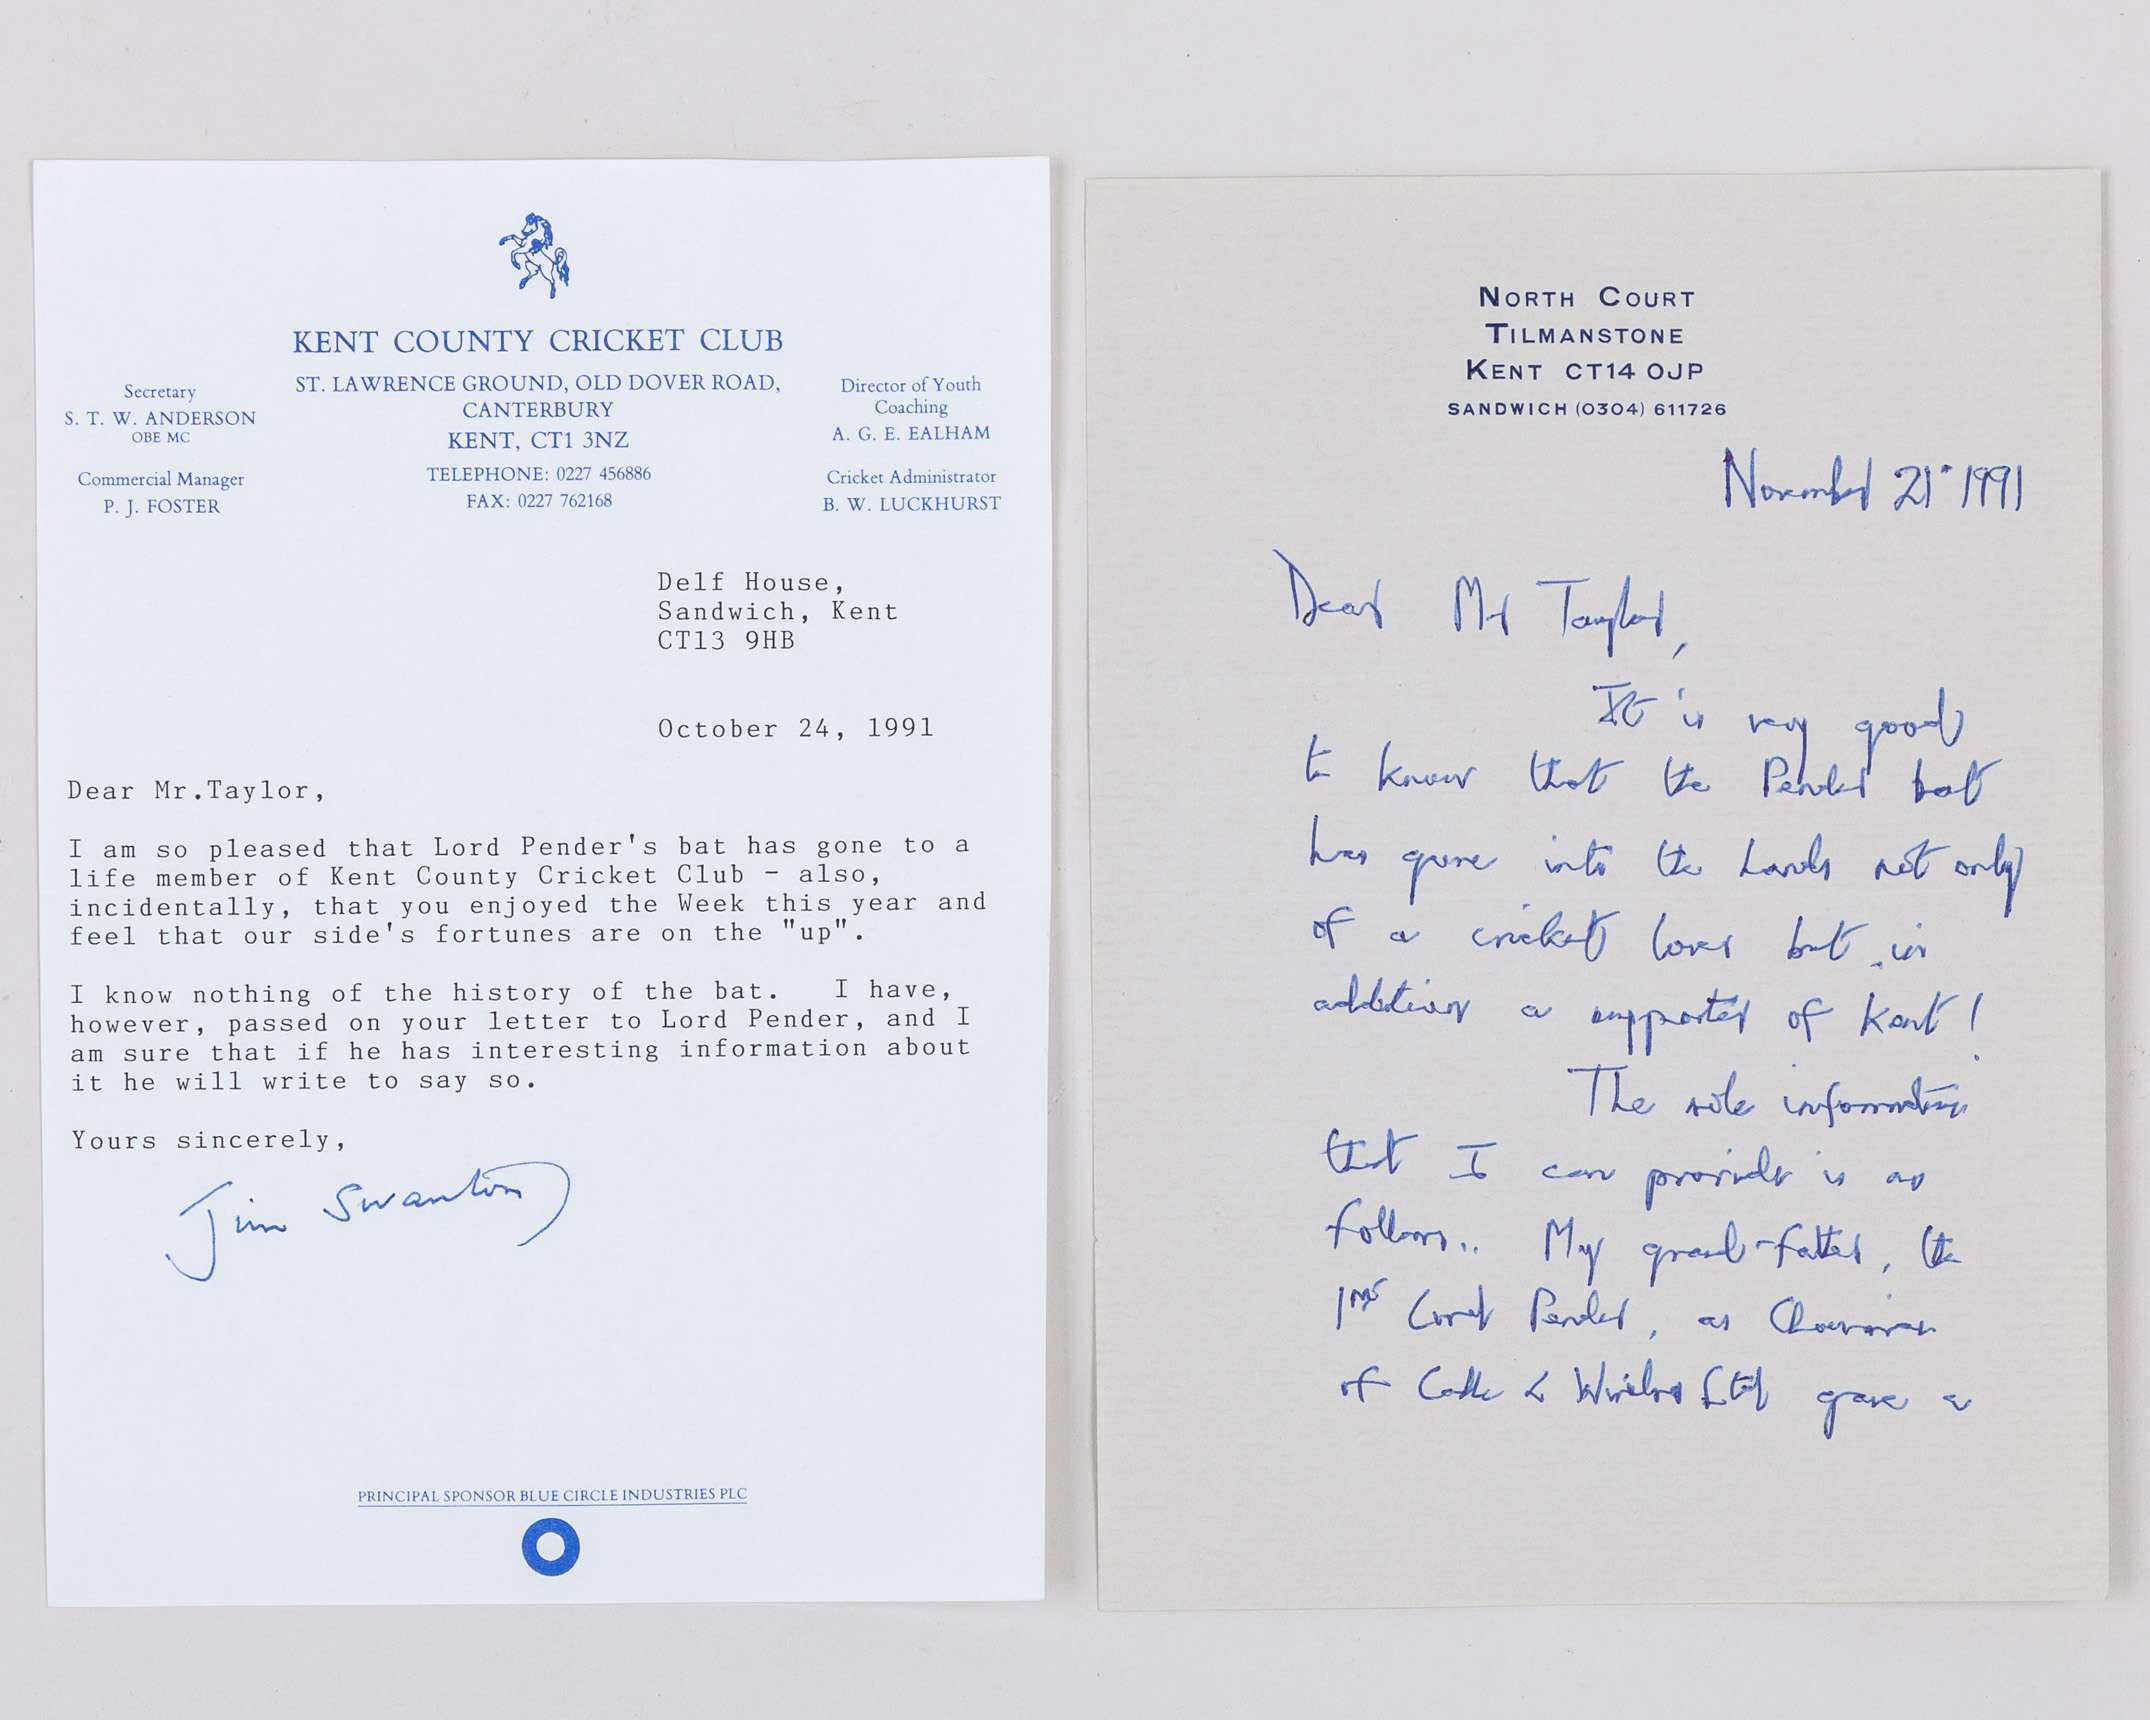 KENT COUNTY CRICKET CLUB
ST. LAWRENCE GROUND, OLD DOVER ROAD,
CANTERBURY
KENT, CT1 3NZ
TELEPHONE: 0227 456886
FAX: 0227 762168
Secretary
S. T. W. ANDERSON
OBE MC
Commercial Manager
P. J. FOSTER
Director of Youth
Coaching
A. G. E. EALHAM
Cricket Administrator
B. W. LUCKHURST
Delf House,
Sandwich, Kent
CT13 9HB
October 24, 1991
Dear Mr.Taylor,
I am so pleased that Lord Pender's bat has gone to a
life member of Kent County Cricket Club - also,
incidentally, that you enjoyed the Week this year and
feel that our side's fortunes are on the "up".
I know nothing of the history of the bat. I have,
however, passed on your letter to Lord Pender, and I
am sure that if he has interesting information about
it he will write to say so.
Yours sincerely,
Jim Swanton
PRINCIPAL SPONSOR BLUE CIRCLE INDUSTRIES PLC
NORTH COURT
TILMANSTONE
KENT CT14 0JP
SANDWICH (0304) 611726
November 21st 1991
Dear Mr Taylor,
It is very good
to know that the Pender bat
has gone into the hands not only
of a cricket lover but in
addition a supporter of Kent!
The sole information
that I can provide is as
follows.. My grand-father, the
1st Lord Pender, as Chairman
of Cable & Wireless Ltd gave a